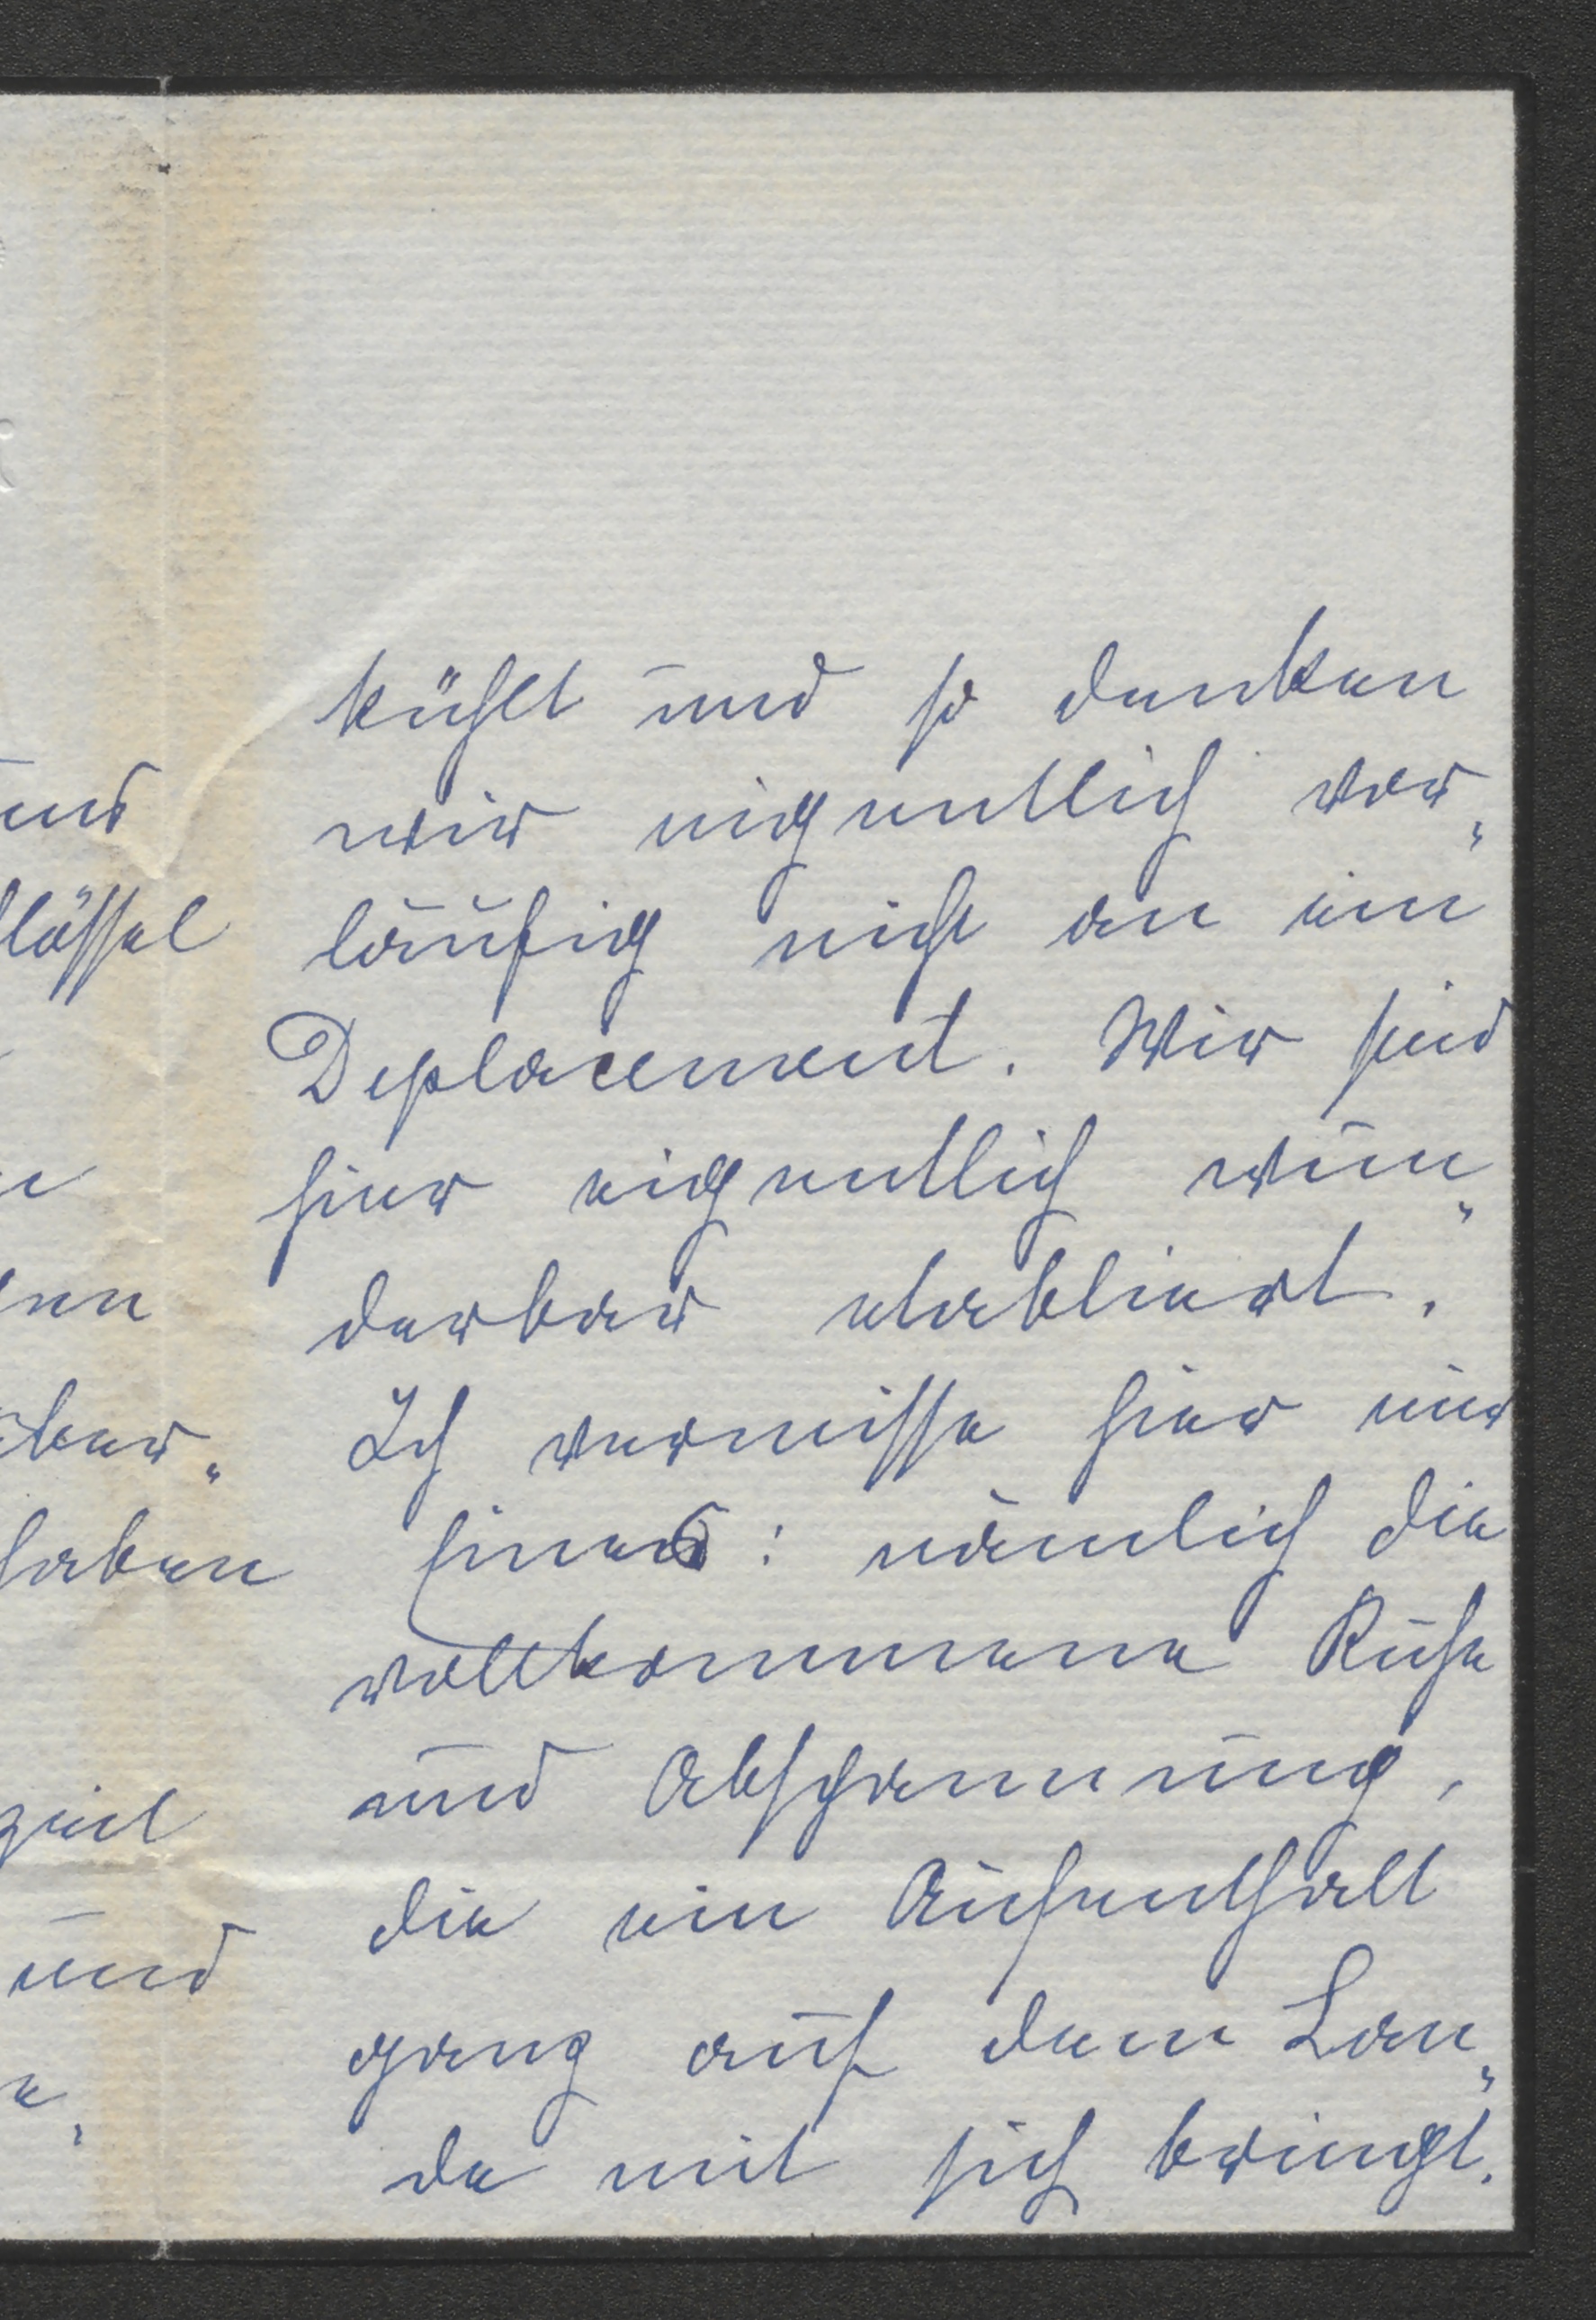 und
haben
und
kühlt und so denken
wir eigentlich vor„
läufig nicht an ein
Deplacement. Wir sind
hier eigentlich wun„
derbar etabliert.
Ich vermisse hier nur
Eines: nämlich die
vollkommene Ruhe
und Abspannung,
die ein Aufenthalt
ganz auf dem Lan„
de mit sich bringt.